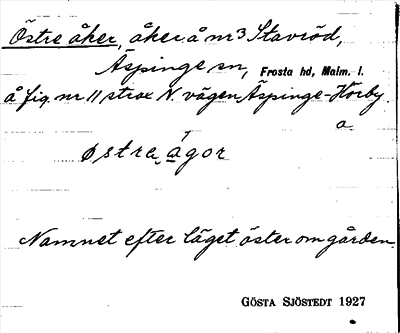 Östre åker, åker å nr 3 Stavröd,
Äspinge sn, Frosta hd, Malm. l.
å fig. nr 11 strax N. vägen Äspinge-Hörby.
a.
østra ågor
Namnet efter läget öster om gården.
GÖSTA SJÖSTEDT 1927